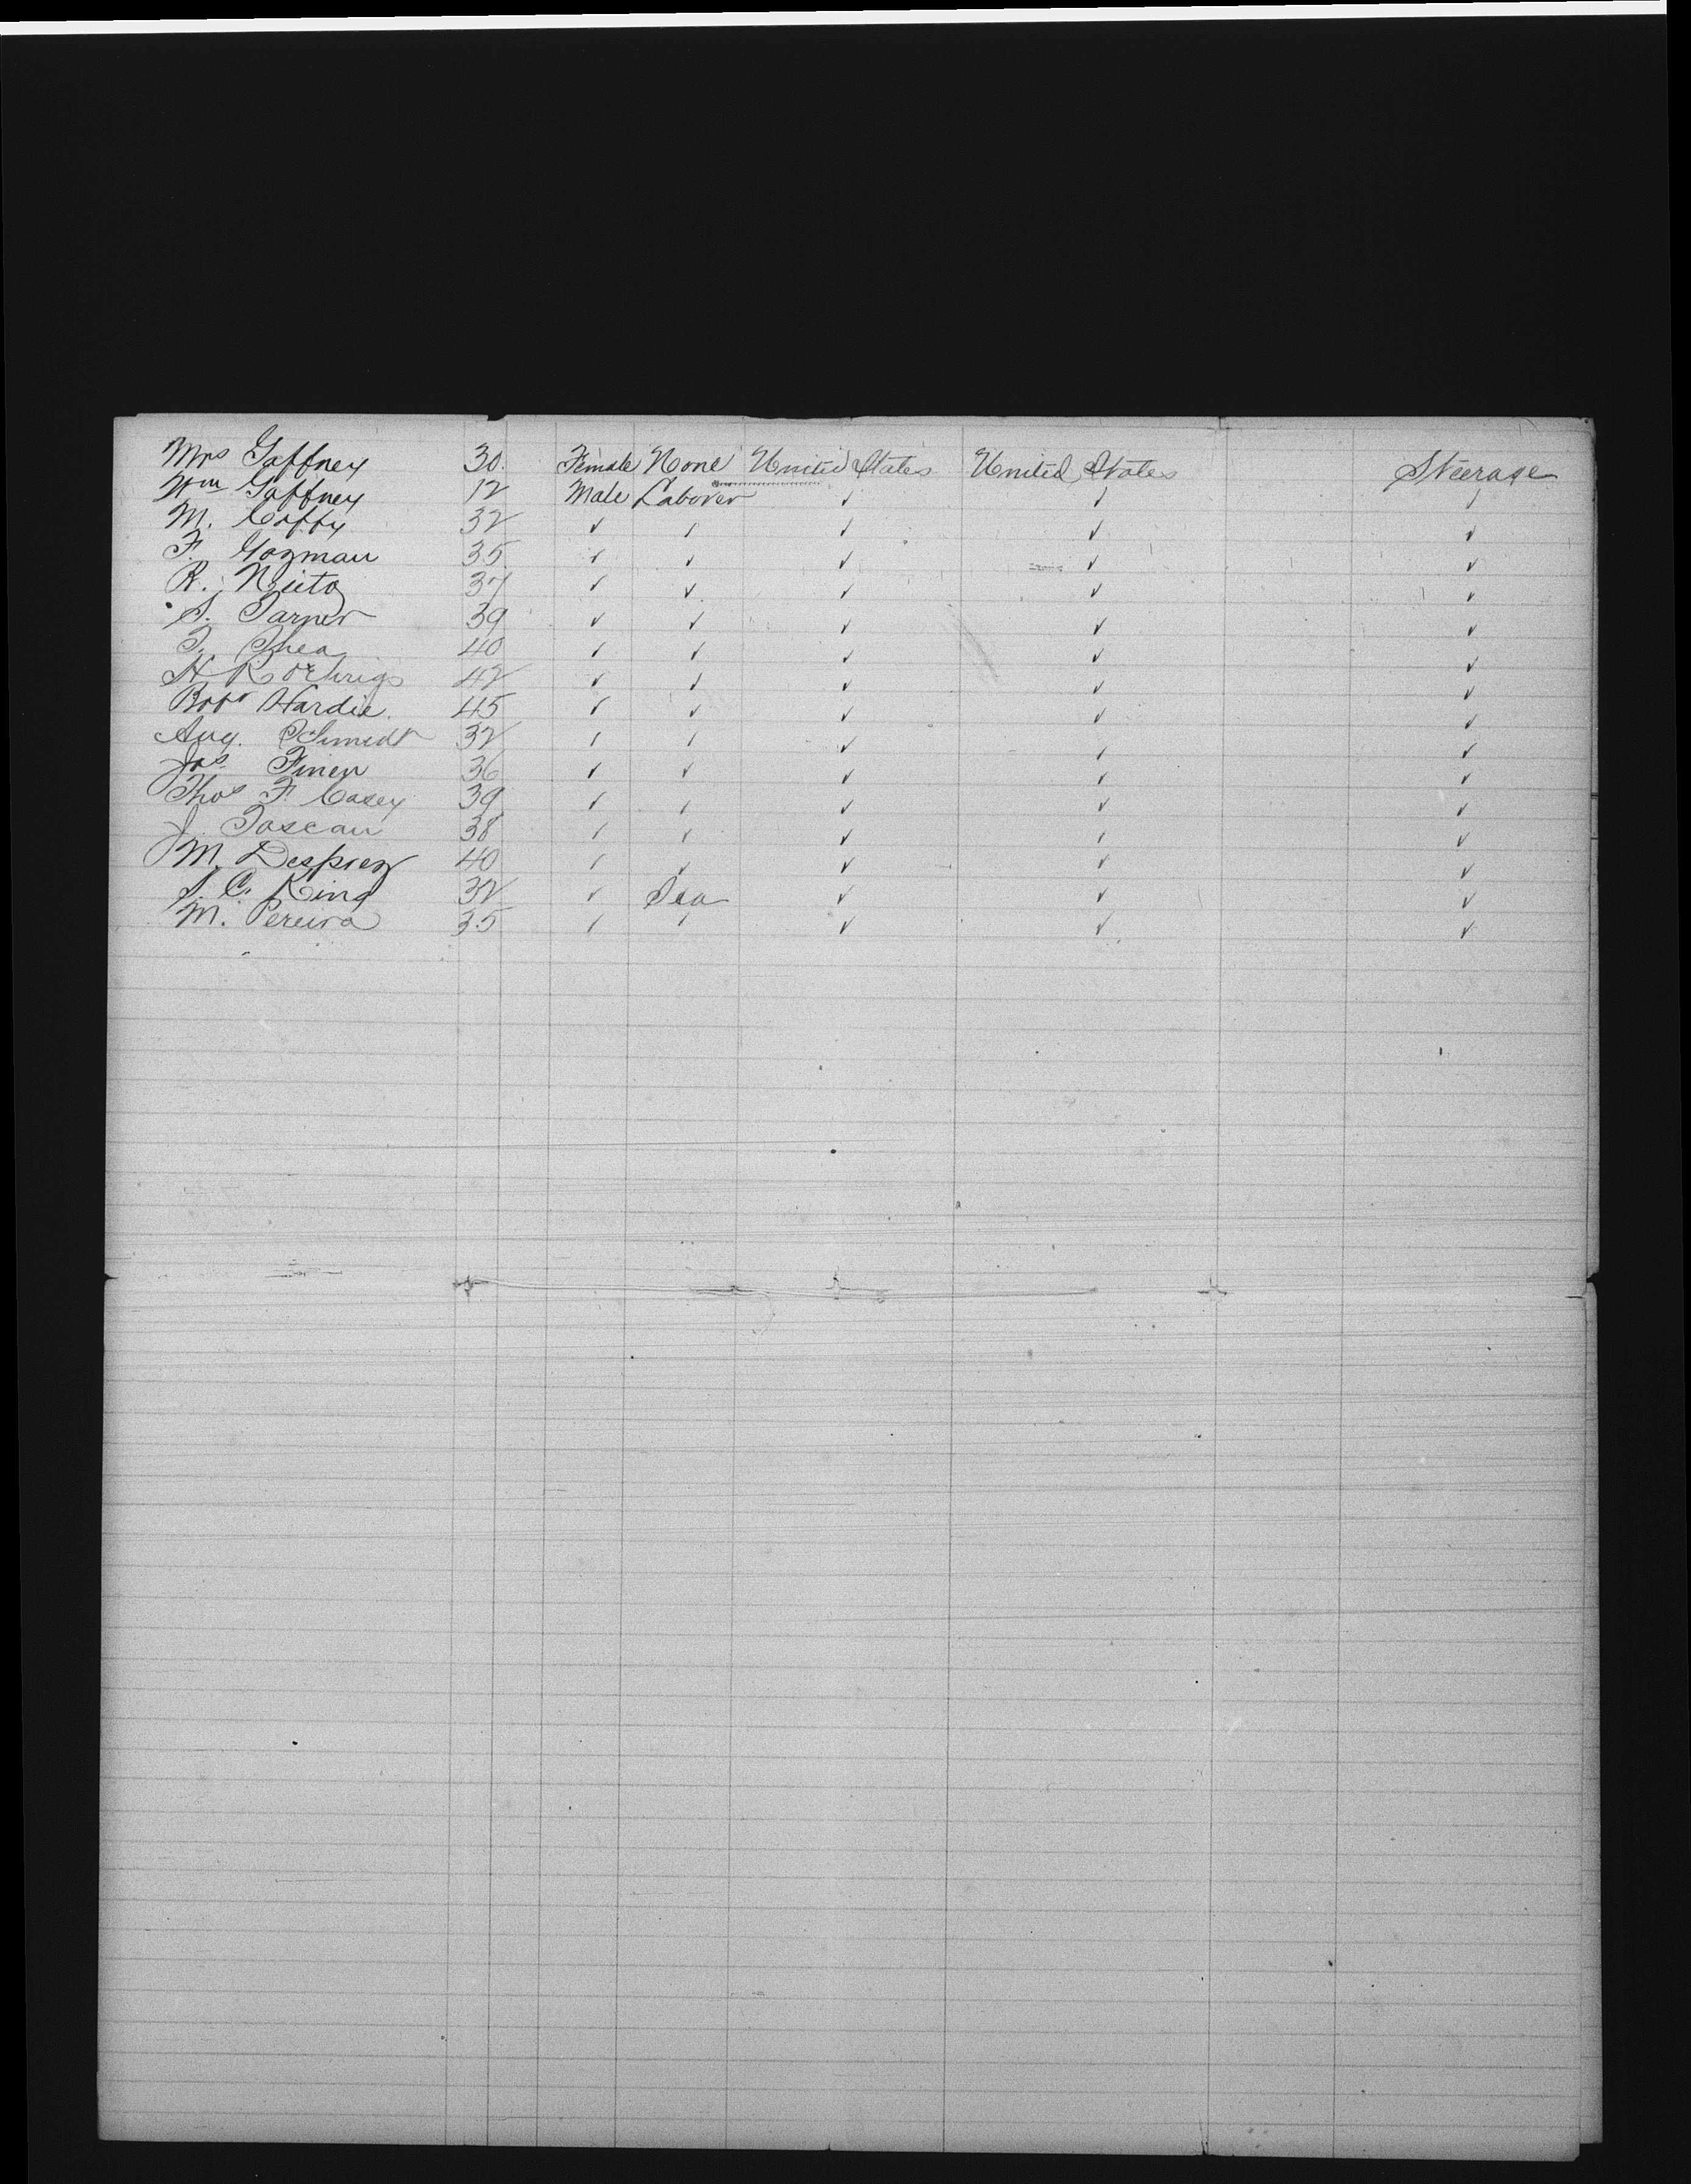 Mrs Gaffney 30. Female None United States United States Steerage
Wm Gaffney 12 Male Laborer ✓ ✓ ✓
M. Coffy 32 ✓ ✓ ✓ ✓ ✓
F. Gozman 35 ✓ ✓ ✓ ✓ ✓
R. Nieto 37 ✓ ✓ ✓ ✓ ✓
S. Tarner 39 ✓ ✓ ✓ ✓ ✓
T. Shea 40 ✓ ✓ ✓ ✓ ✓
H Roehrigs 42 ✓ ✓ ✓ ✓ ✓
Robt Hardie. 45 ✓ ✓ ✓ ✓ ✓
Aug. Schmidt 32 ✓ ✓ ✓ ✓ ✓
Jas. Finen 36 ✓ ✓ ✓ ✓ ✓
Thos F. Casey 39 ✓ ✓ ✓ ✓ ✓
J. Toscan 38 ✓ ✓ ✓ ✓ ✓
M. Desprez 40 ✓ ✓ ✓ ✓ ✓
S. C. King 32 ✓ Sea ✓ ✓ ✓
M. Pereira 35 ✓ ✓ ✓ ✓ ✓